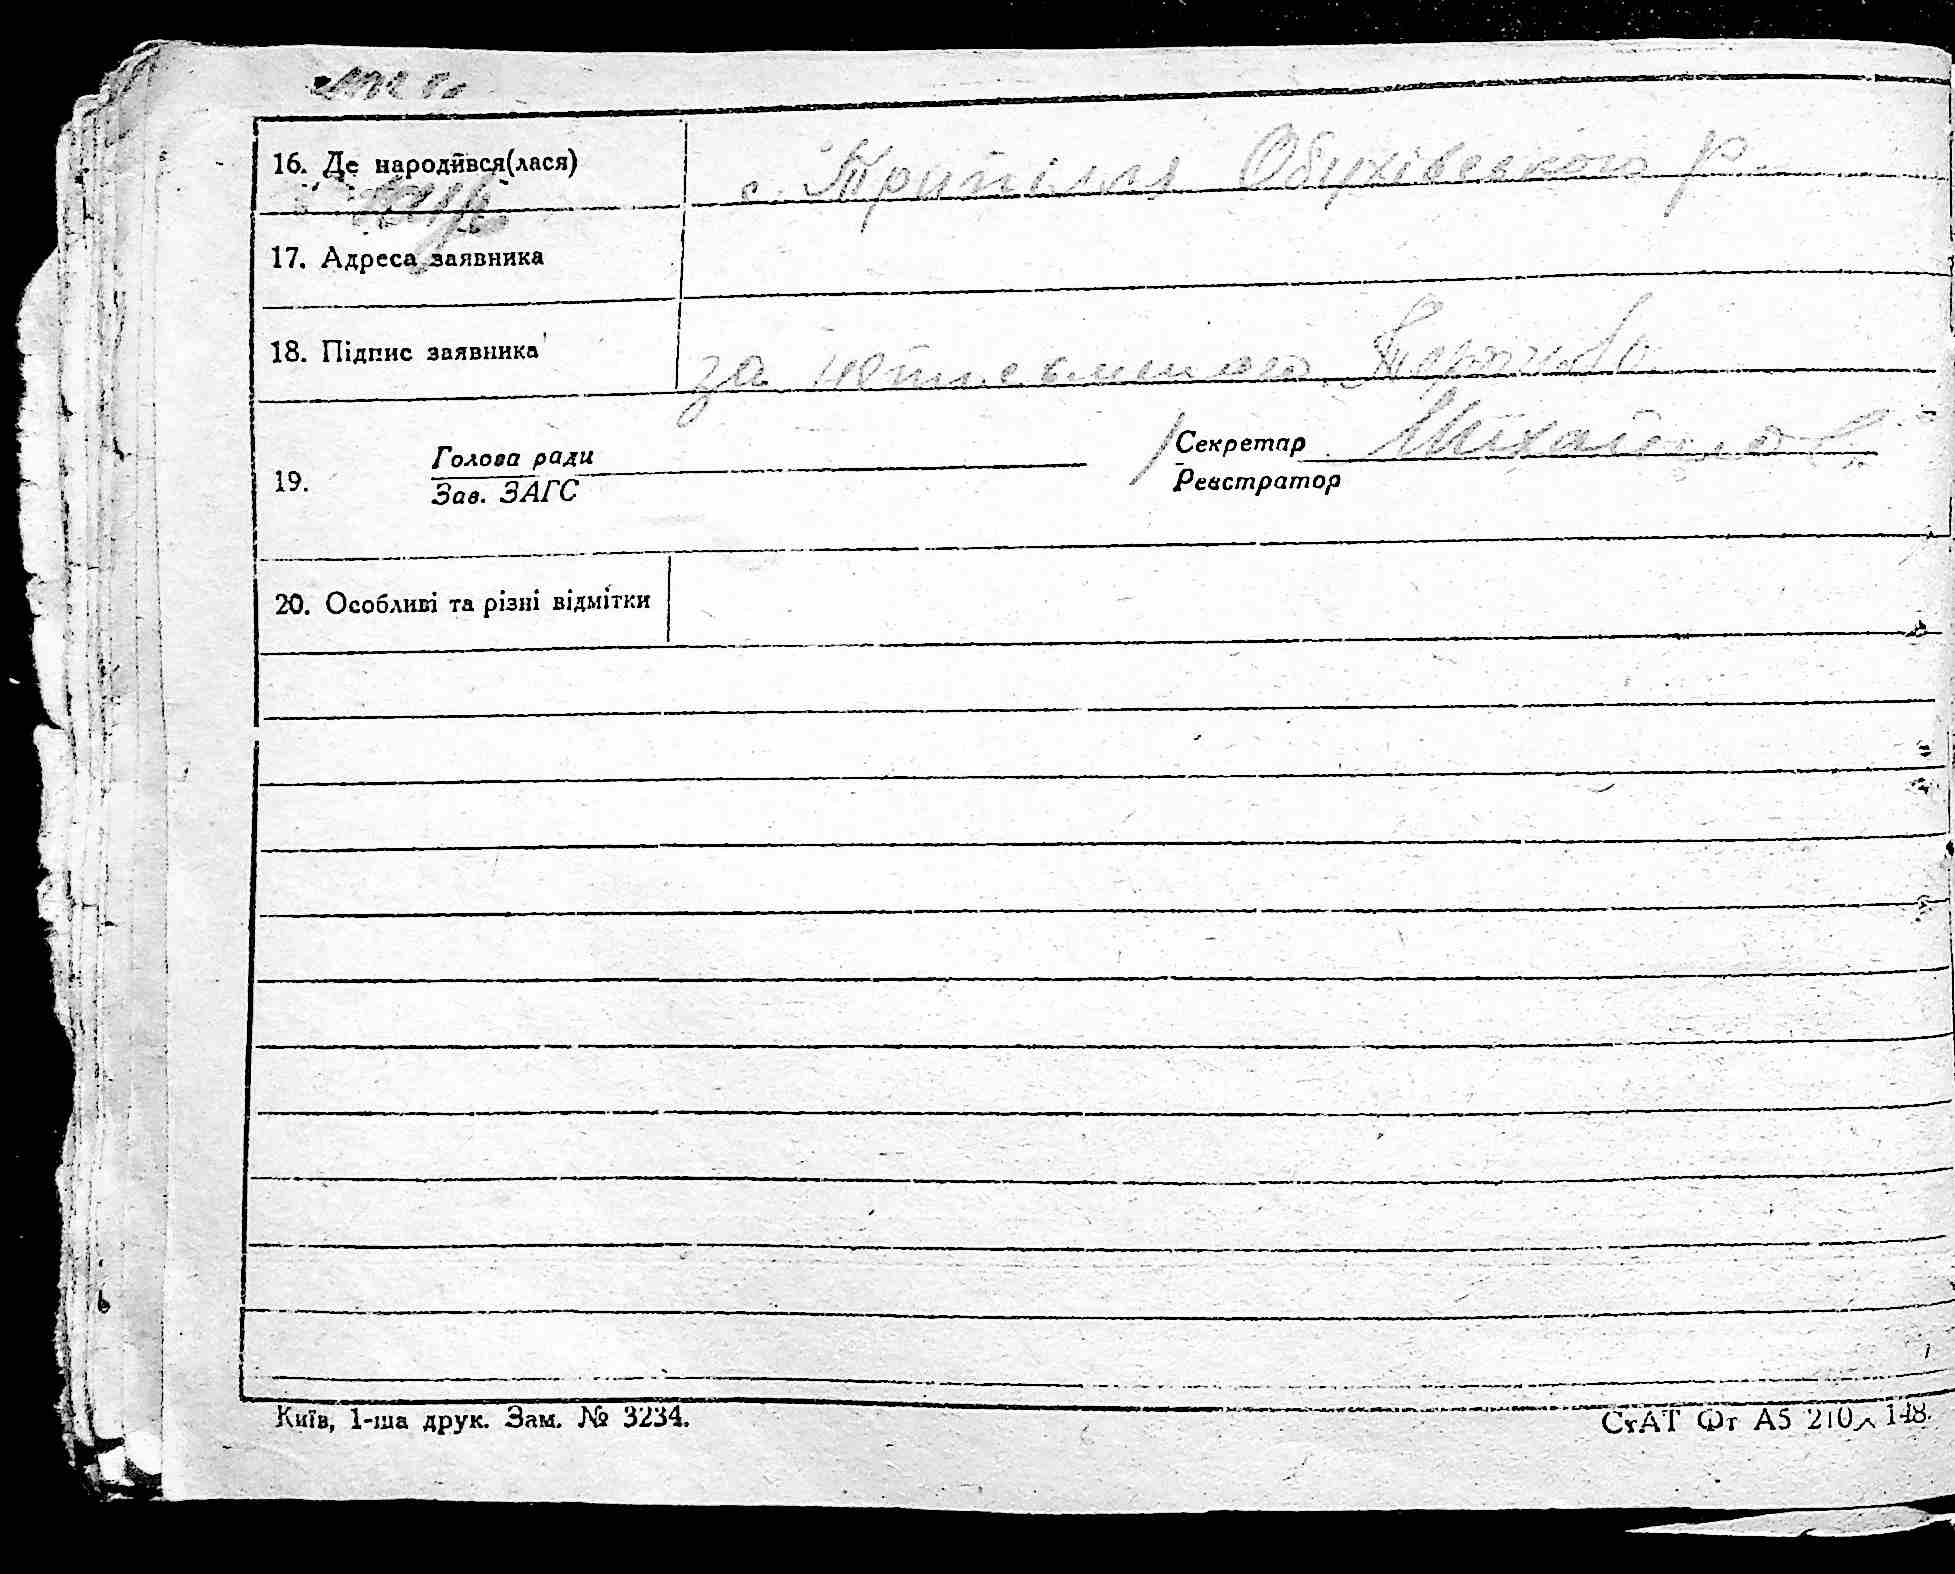 16. Де народився(лася) с. Трипілля Обухівського р-н
17. Адреса заявника
18. Підпис заявника за неписьменого
Голова ради Секретар Михайлов
19.
Зав. ЗАГС Реєстратор
20. Особливі та різні відмітки
Київ, 1-ша друк. Зам. № 3234. СтАТ Фт А5 210 148.